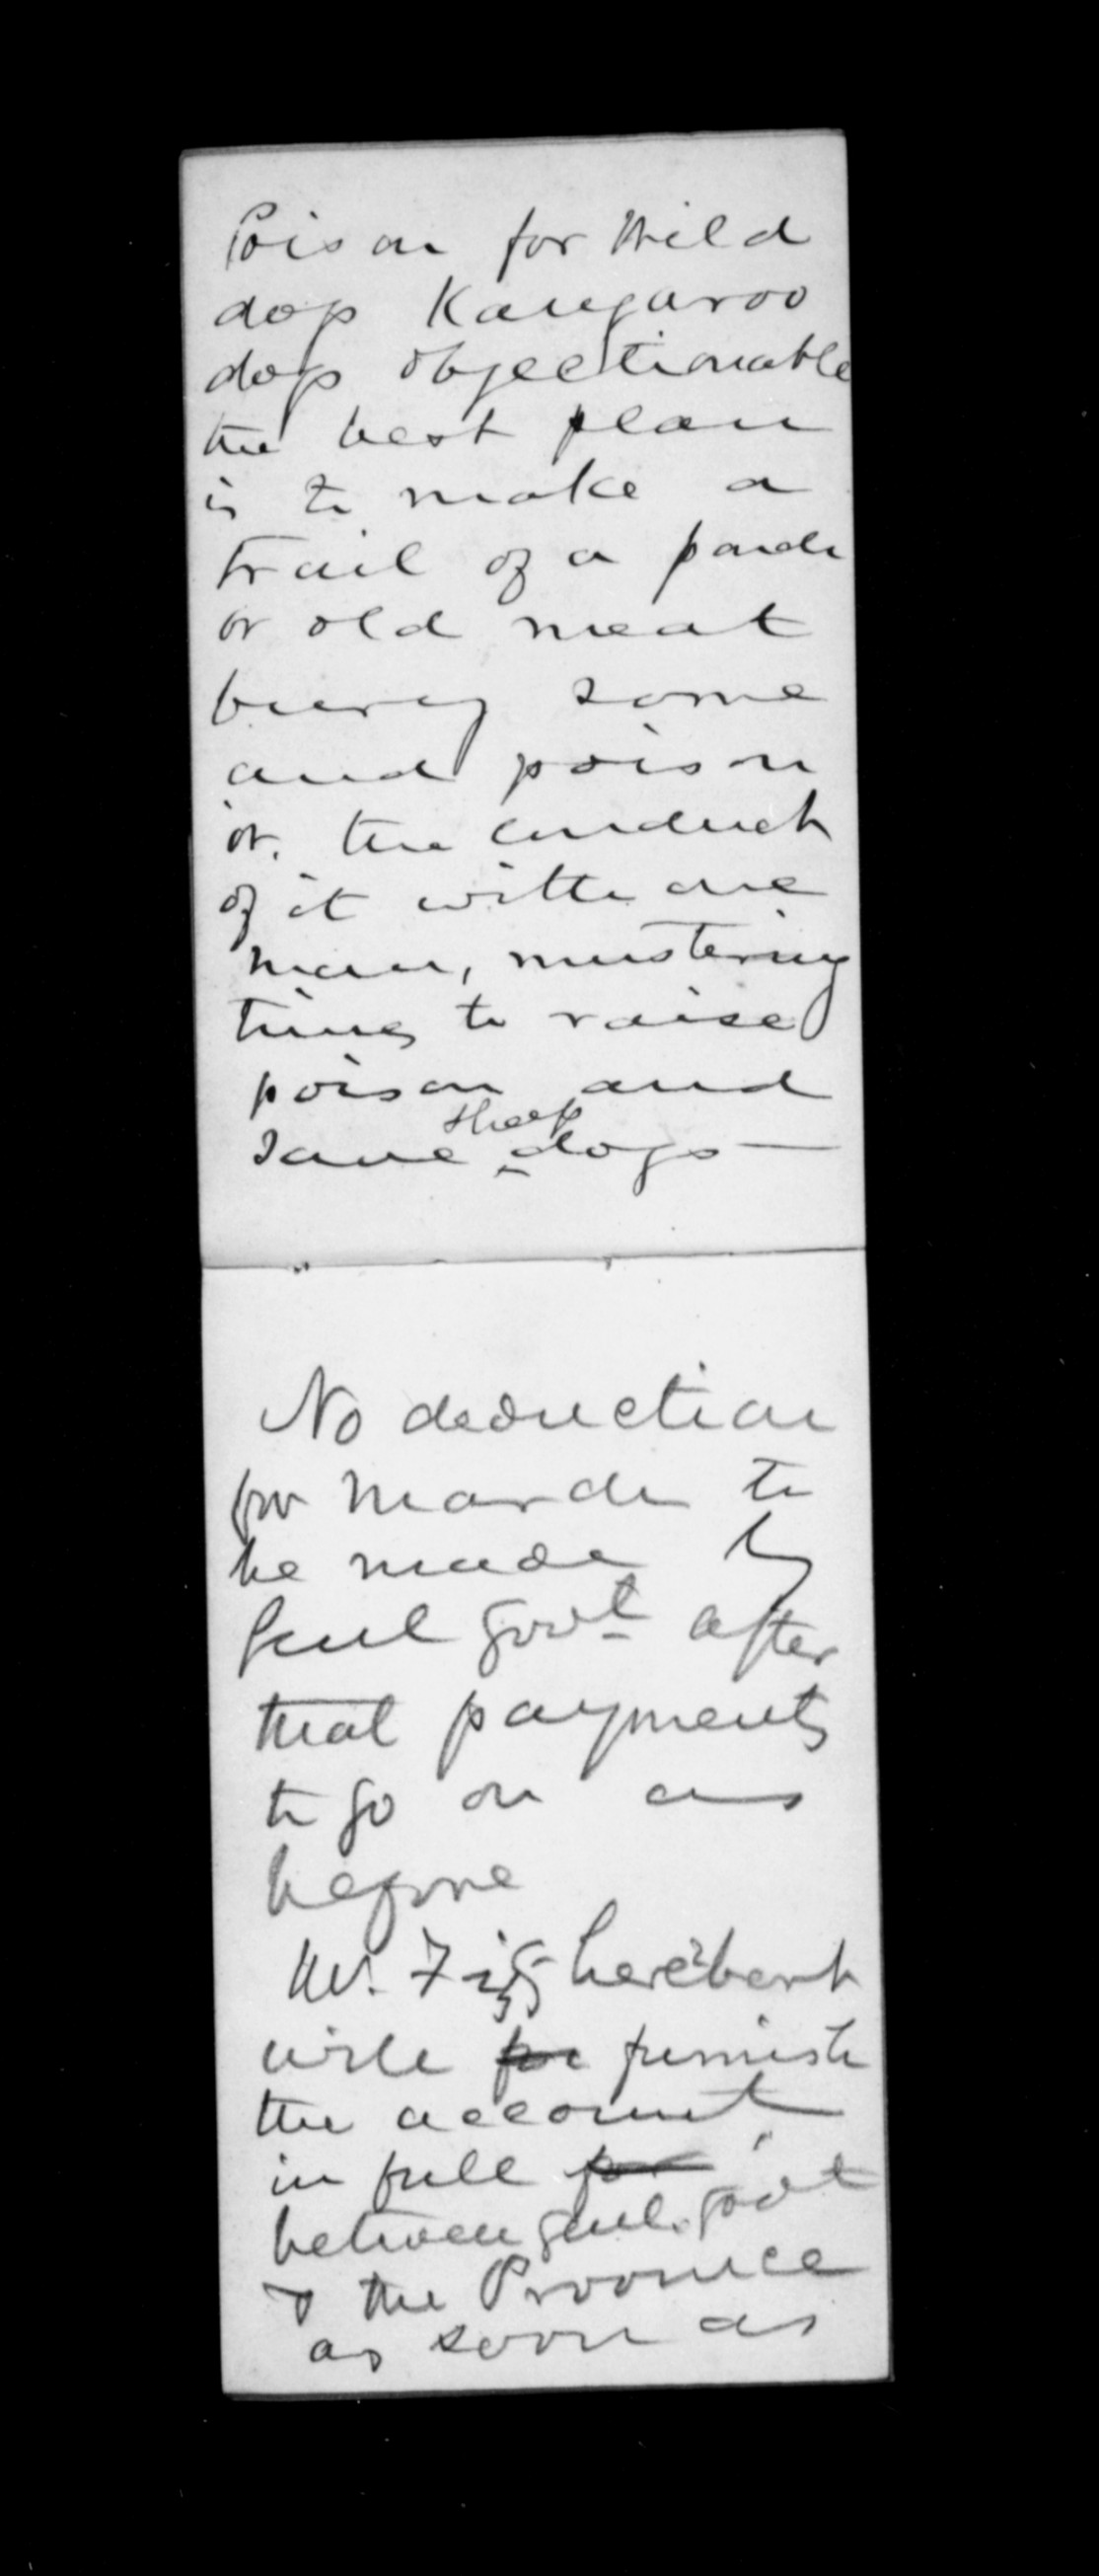 Poison for Wild
dogs Kangaroo
dogs objectionable
the best plan
is to make a
trail of a
or old meat
bury some
and poison
or. the conduct
of it with one
man, mustering
times to raise
poison and
save sheep dogs —
No deduction
for March to
be made by
Genl Govt after
that payments
to go on as
before
Mr. Fitzherbert
will for furnish
the account
in full for
between genl. govt
& the Province
as soon as